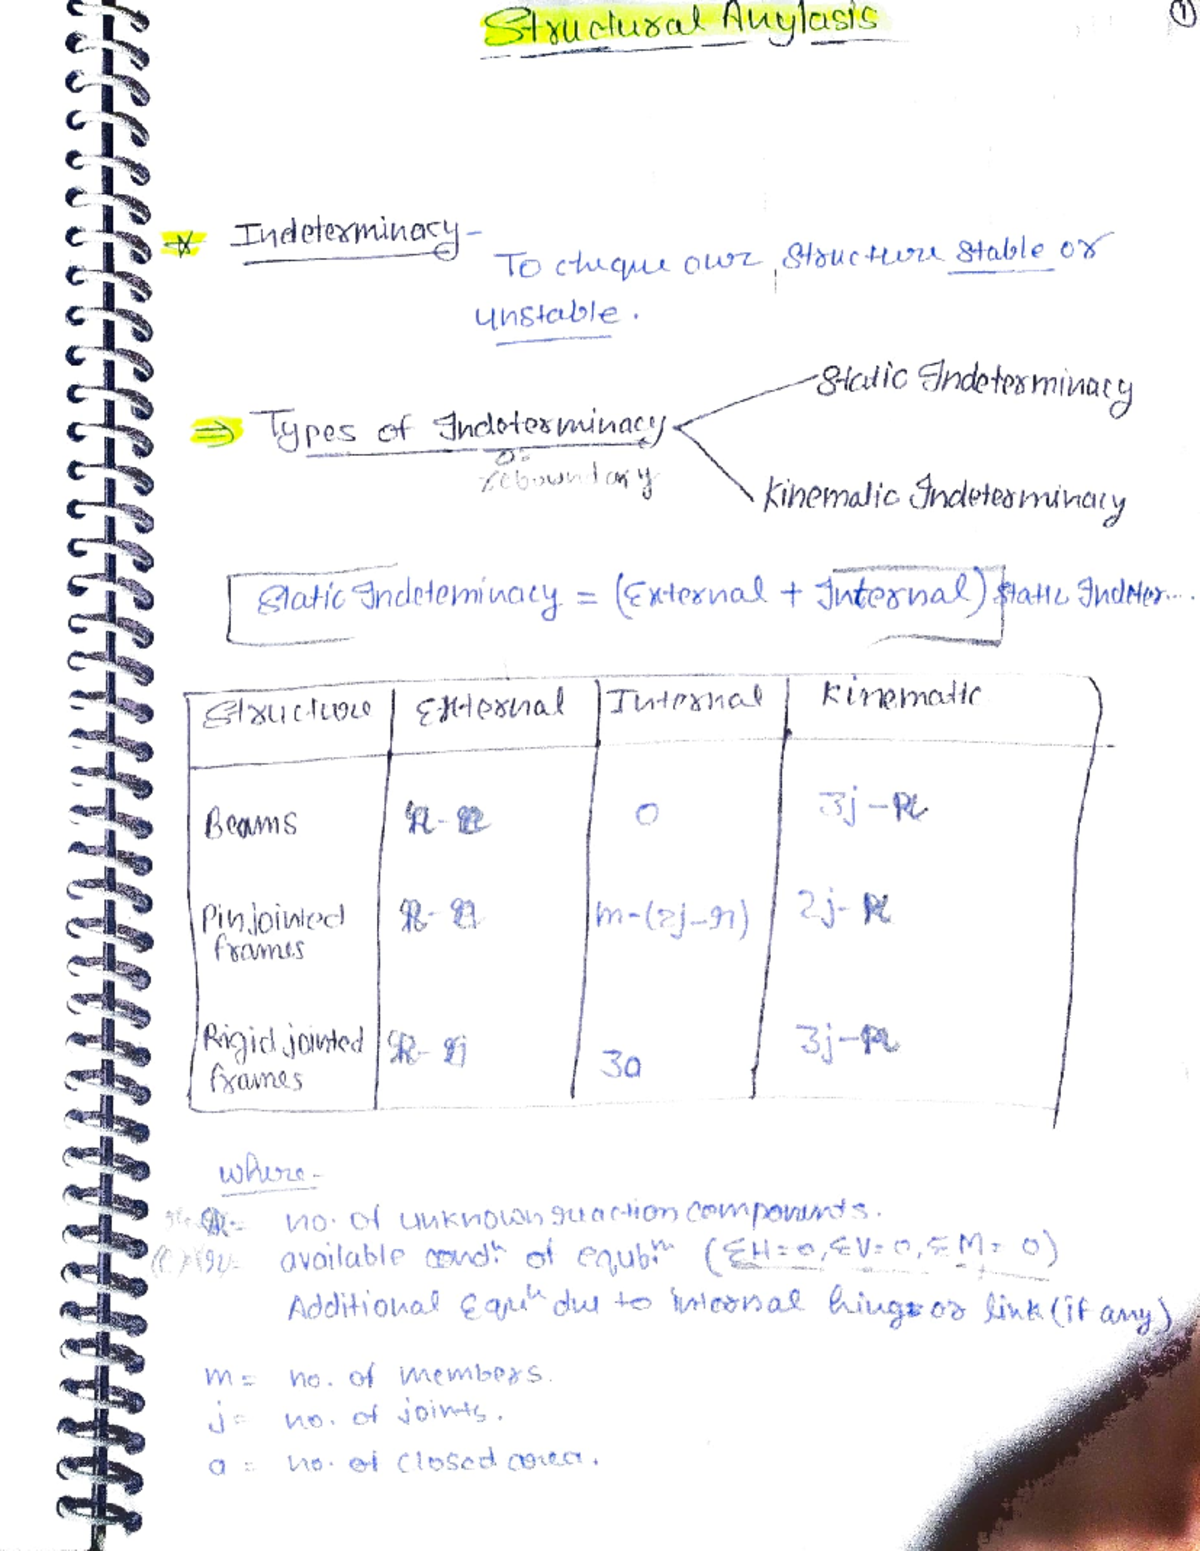 Structural Anylasis
1
Indeterminacy -
To cheque our structure stable or
unstable.
Static Indeterminacy
⇒ Types of Indeterminacy
or
Kinematic Indeterminacy
Static Indeteminacy = (External + Internal) static Indeter....
Structure External Internal Kinematic
Beams 0 3j-
Pin jointed m-(2j-r) 2j-
frames
Rigid jointed 3a 3j-
frames
where-
no. of unknown reaction components.
available condn of equbm (ΣH=0, ΣV=0, ΣM=0)
Additional Equn due to internal hinge or link (if any)
m = no. of members.
j = no. of joints.
a = no. of closed area.